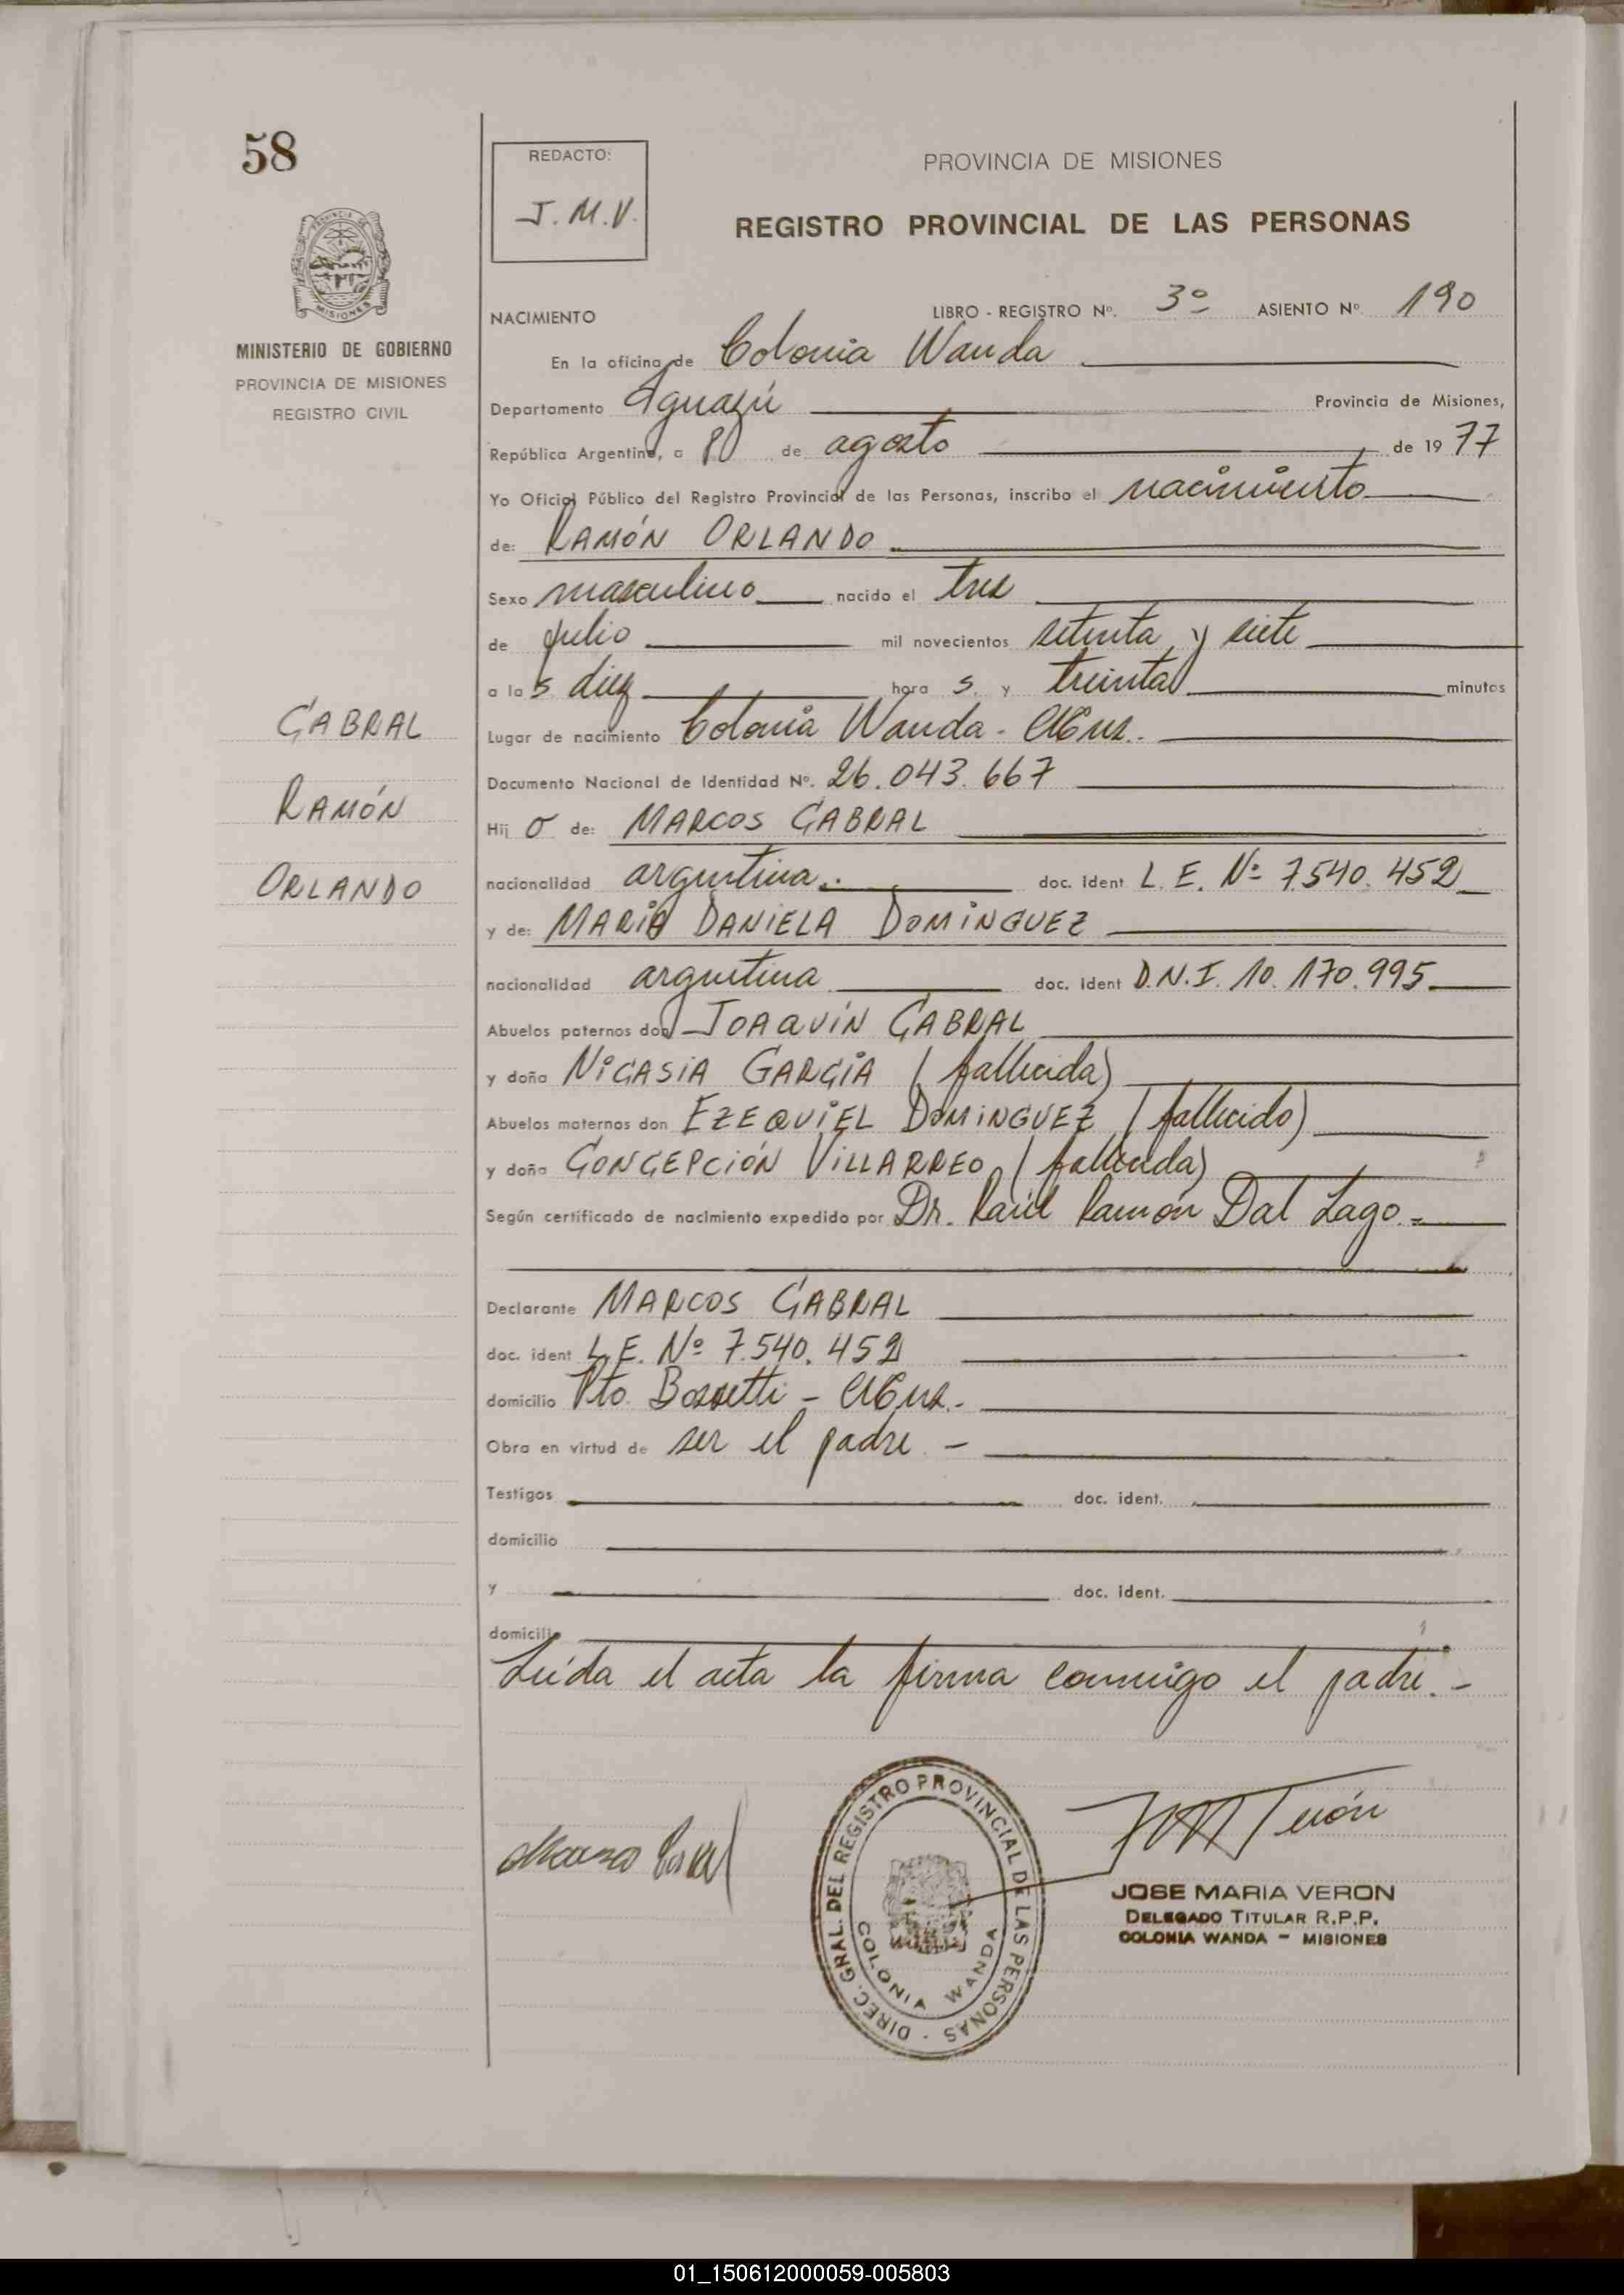 58
REDACTO:
J.M.V.
PROVINCIA DE MISIONES
REGISTRO PROVINCIAL DE LAS PERSONAS
MISIONES
MINISTERIO DE GOBIERNO
PROVINCIA DE MISIONES
REGISTRO CIVIL
NACIMIENTO LIBRO - REGISTRO Nº. 3º ASIENTO Nº. 190
En la oficina de Colonia Wanda
Departamento Iguazú Provincia de Misiones,
República Argentina, a de agosto de 1977
Yo Oficial Público del Registro Provincial de las Personas, inscribo el nacimiento
de: RAMÓN ORLANDO
Sexo masculino nacido el tres
de julio mil novecientos setenta y siete
a las diez horas y treinta minutos
CABRAL
RAMÓN
ORLANDO
Lugar de nacimiento Colonia Wanda - Mnes.
Documento Nacional de Identidad Nº. 26.043.667
Hijo de: MARCOS CABRAL
nacionalidad argentina.- doc. ident L.E. Nº 7.540.452
y de: MARIA DANIELA DOMINGUEZ
nacionalidad argentina doc. ident D.N.I. 10.170.995
Abuelos paternos don JOAQUÍN CABRAL
y doña NICASIA GARCÍA (fallecida)
Abuelos maternos don EZEQUIEL DOMINGUEZ (fallecido)
y doña CONCEPCIÓN VILLARREO (fallecida)
Según certificado de nacimiento expedido por Dr. Raúl Ramón Dal Lago.-
Declarante MARCOS CABRAL
doc. ident L.E. Nº 7.540.452
domicilio Pto. Bossetti - Mnes.-
Obra en virtud de ser el padre.-
Testigos doc. ident.
domicilio
y doc. ident.
domicilio
Leída el acta la firma conmigo el padre.-
Marcos Cabral
DIREC. GRAL. DEL REGISTRO PROVINCIAL DE LAS PERSONAS
COLONIA WANDA
JOSE MARIA VERON
DELEGADO TITULAR R.P.P.
COLONIA WANDA - MISIONES
01_150612000059-005803